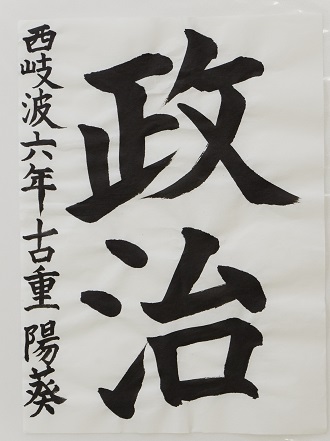 政治
西岐波六年古重陽葵